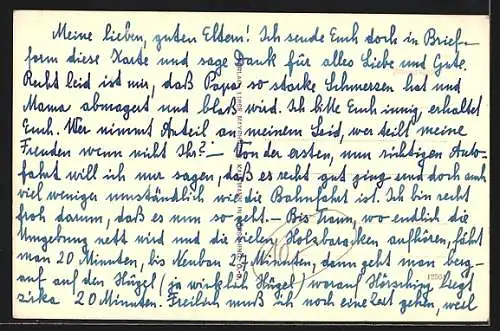 Meine lieben, guten Eltern! Ich sende Euch doch in Brief-
form diese Karte und sage Dank für alles Liebe und Gute.
Recht leid ist mir, daß Papa so starke Schmerzen hat und
Mama abmagert und blaß wird. Ich bitte Euch innig, erhaltet
Euch. Wer nimmt Anteil an meinem Leid, wer teilt meine
Freuden wenn nicht Ihr? — Von der ersten, nun richtigen Auto-
fahrt will ich nur sagen, daß es recht gut ging und doch auch
viel weniger umständlich wie die Bahnfahrt ist. Ich bin recht
froh darum, daß es nun so geht. — Bis wo endlich die
Umgebung nett wird und die vielen Holzbaracken aufhören, fährt
man 20 Minuten, bis Neubau 27 Minuten, dann geht man berg-
auf auf den Hügel (ja wirklich Hügel) worauf Hörsching liegt
zirka 20 Minuten. Freilich muß ich noch eine Zeit gehen, weil